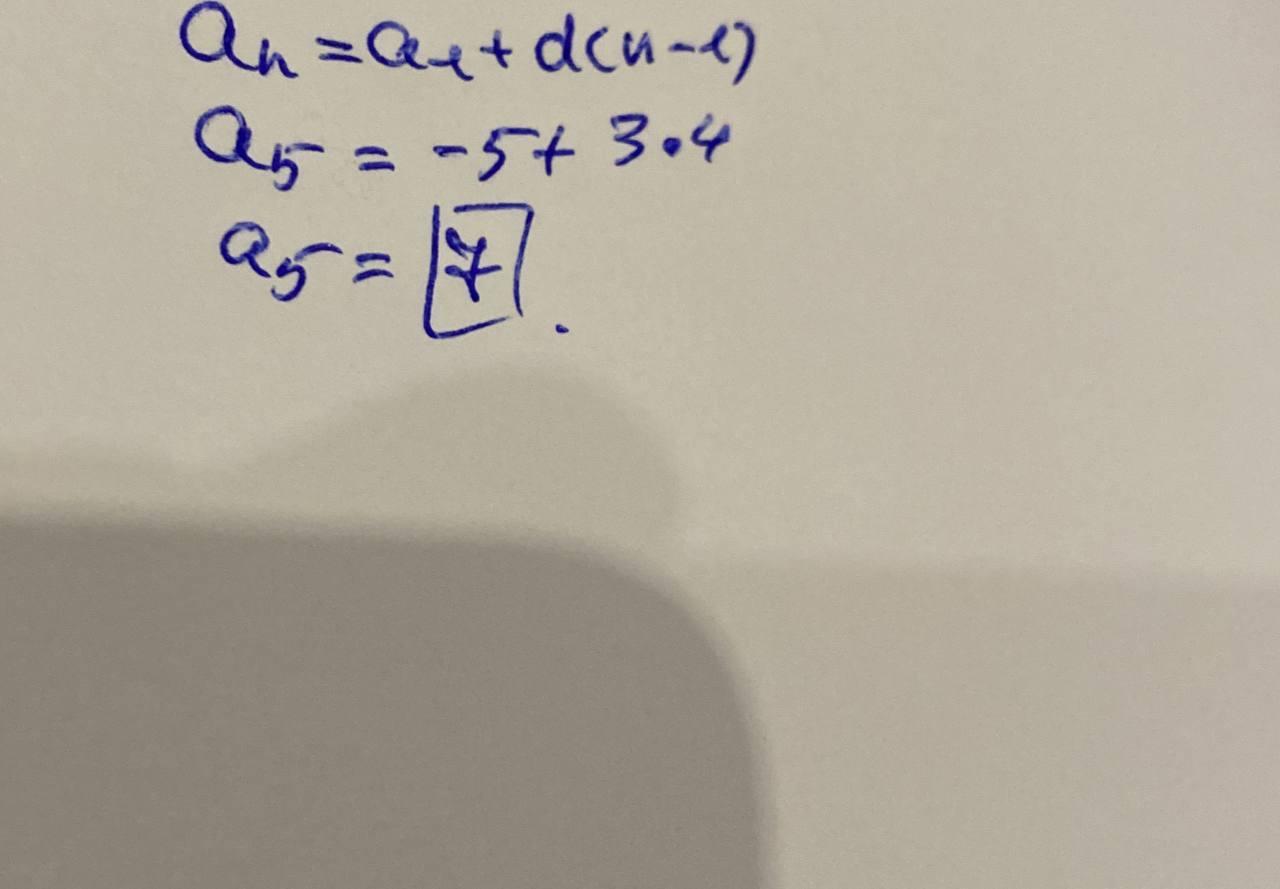 aₙ = a₁ + d(n-1)
a₅ = -5 + 3·4
a₅ = 7.